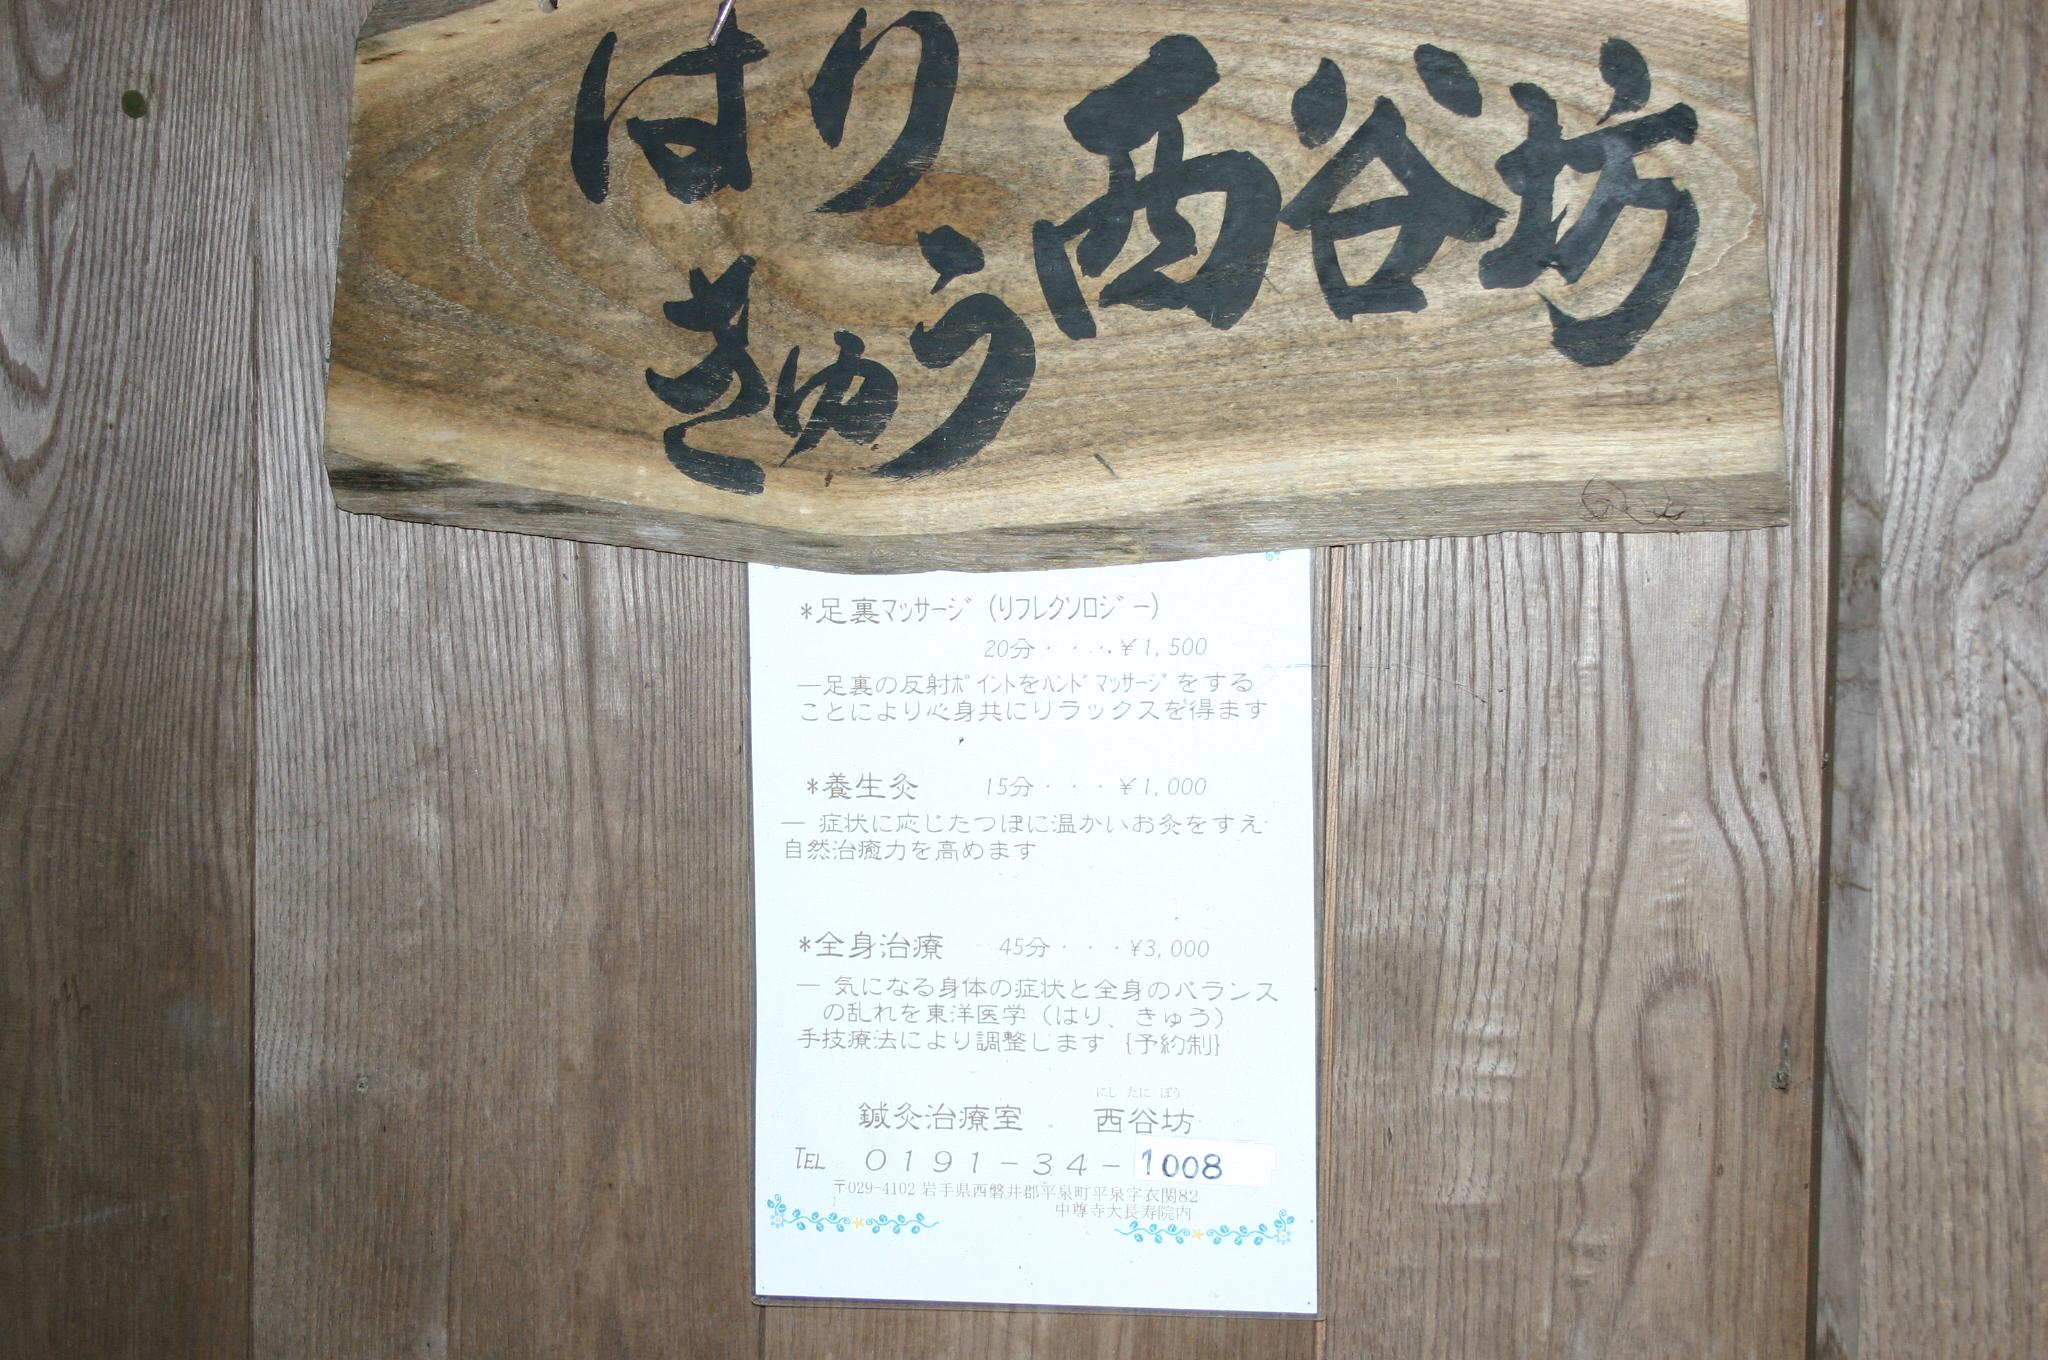 はり
きゅう
西谷坊
*足裏マッサージ(リフレクソロジー)
20分・・・・¥1,500
―足裏の反射ポイントをハンドマッサージをする
ことにより心身共にリラックスを得ます
*養生灸 15分・・・¥1,000
― 症状に応じたつぼに温かいお灸をすえ
自然治癒力を高めます
*全身治療 45分・・・¥3,000
― 気になる身体の症状と全身のバランス
の乱れを東洋医学(はり、きゅう)
手技療法により調整します {予約制}
にし たに ぼう
鍼灸治療室 西谷坊
TEL 0191-34-1008
〒029-4102 岩手県西磐井郡平泉町平泉字衣関82
中尊寺大長寿院内